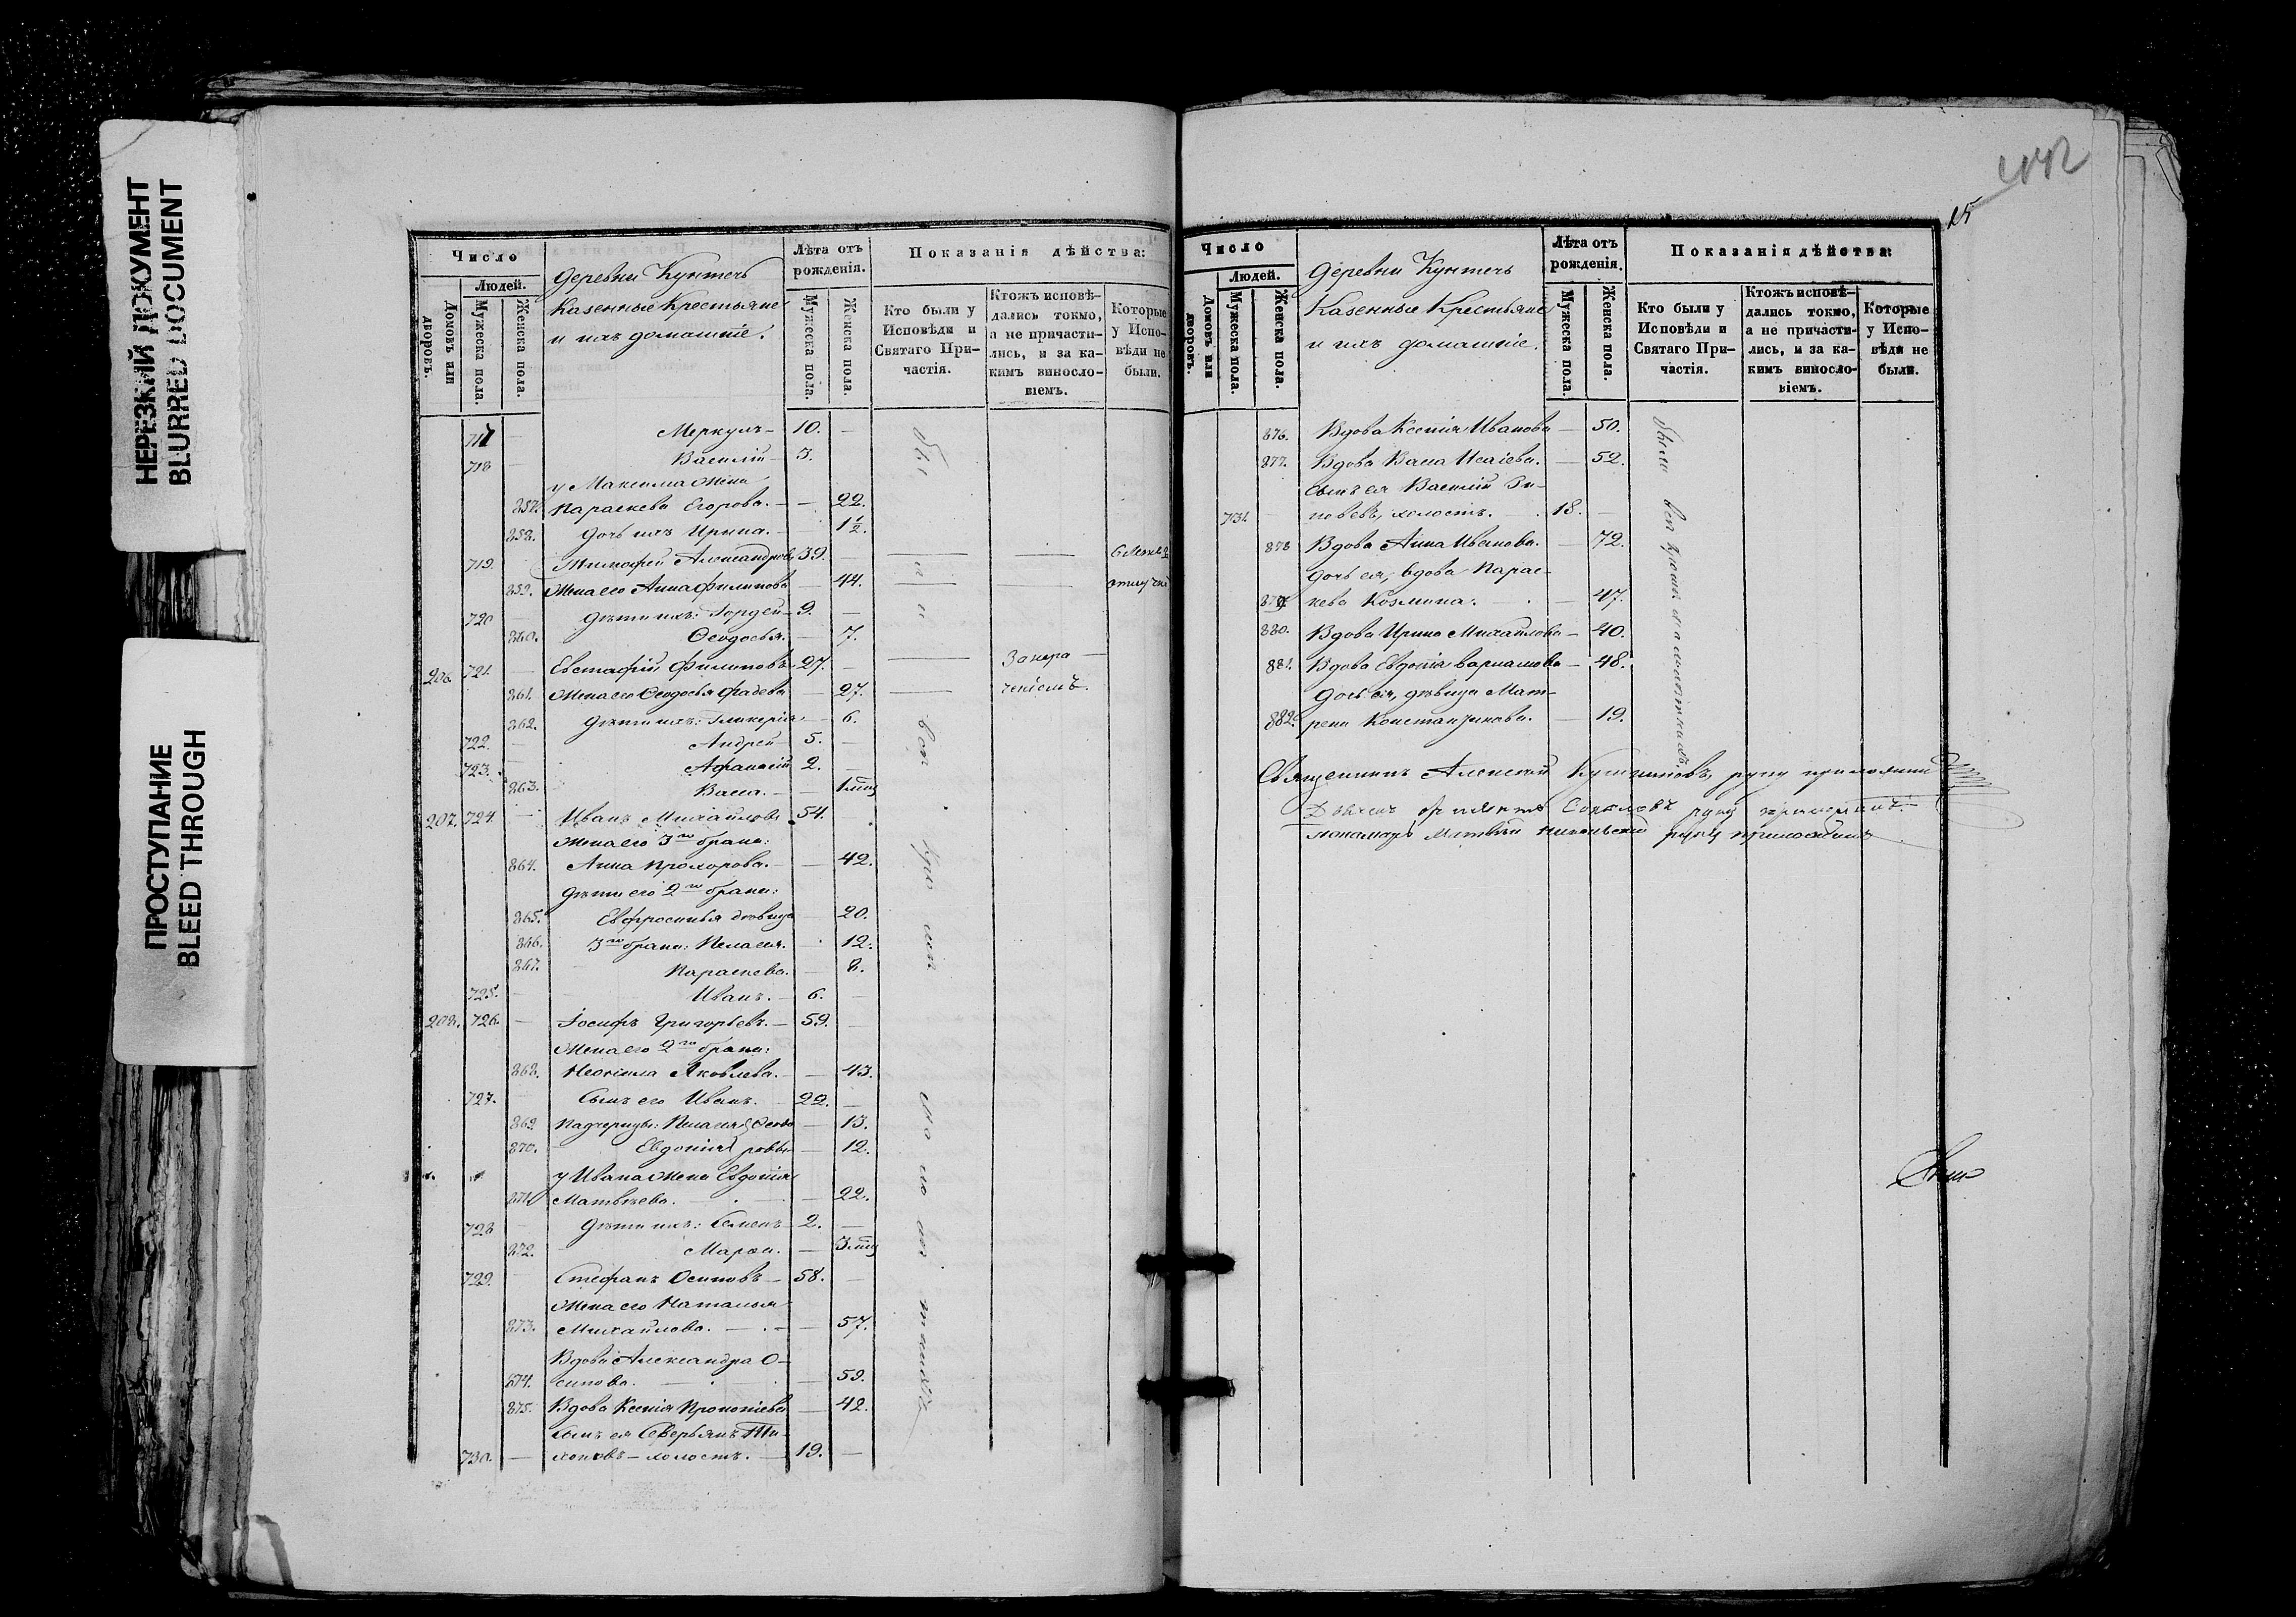 НЕРЕЗКИЙ ДОКУМЕНТ
BLURRED DOCUMENT
ПРОСТУПАНИЕ
BLEED THROUGH
Число
Людей.
Домовъ или дворовъ.
Мужеска пола.
Женска пола.
Деревни Кунтечь
Казенные Крестьяне
и ихъ домашніе.
Лѣта отъ рожденія.
Мужеска пола.
Женска пола.
Показанія дѣйства:
Кто были у Исповѣди и Святаго Причастія.
Ктожъ исповѣ-
дались токмо,
а не причасти-
лись, и за ка-
кимъ виносло-
віемъ.
Которые
у Испо-
вѣди не
были.
717 — Меркулъ — 10. —
718 — Василій — 3.
у Максима Жена
857. Параскева Егорова. — — 22.
858. Дочь ихъ Ирина. — 1½
719. Тимофей Александровъ 39. —
859. Жена его Анна Филипова — 44.
720 Дѣти ихъ: Гордей — 9. —
860. Ѳеодосья. — 7.
206. 721. — Евстафій Филиповъ 27. —
861. Жена его Ѳеодосья Фадеева — 27.
862. Дѣти ихъ: Гликерія — 6.
722. — Андрей 5. —
723. Афанасій 2. —
863. Васса. — 1 мѣс
207. 724. — Иванъ Михайловъ 54. —
Жена его 3го брака:
864. Анна Прохорова. — — 42.
Дѣти его 2го брака:
865. Евфросинья дѣвица 20.
866. 3го брака: Пелагея. — 12.
867. Параскева. — 8.
725. — Иванъ. — 6. —
208. 726. — Іосифъ Григорьевъ. — 59.
Жена его 2го брака:
868. Неонила Яковлева. — — 43.
727. — Сынъ его Иванъ. — 22. —
869. Падчерицы: Пелагея — 13.
870. Евдокія — 12.
у Ивана Жена Евдокія
871. Матвѣева. — — 22.
728 — Дѣти ихъ: Семенъ — 2. —
872. Марѳа. — 3 мѣс
729. — Стефанъ Осиповъ — 58. —
Жена его Наталья
873. Михайлова. — — 57.
Вдова Александра О-
874. сипова. — — 59.
875. Вдова Ксенія Прокопіева — 42.
Сынъ ея Северьянъ Ти-
730. — хоновъ — холостъ. — 19. —
были
и
и
вси
Число
Людей.
Домовъ или дворовъ.
Мужеска пола.
Женска пола.
Деревни Кунтечь
Казенные Крестьяне
и ихъ домашніе.
Лѣта отъ рожденія.
Мужеска пола.
Женска пола.
Показанія дѣйства:
Кто были у Исповѣди и Святаго Причастія.
Ктожъ исповѣ-
дались токмо,
а не причасти-
лись, и за ка-
кимъ винослo-
віемъ.
Которые
у Испо-
вѣди не
были.
876. Вдова Ксенія Иванова — 50.
877. Вдова Васса Исаіева. — 52.
Сынъ ея Василій Зи-
731. новьевъ, холостъ. 18. —
878 Вдова Анна Иванова. — 72.
Дочь ея, вдова Парас-
879 кева Козмина. — 47.
880. Вдова Ирина Михайлова — 40.
881. Вдова Евдокія Варламова — 48.
Дочь ея, дѣвица Мат-
882. рена Константинова. — 19.
были вси кромѣ малолѣтнихъ.
Священникъ Алексей руку приложилъ
Соколовъ руку приложилъ
Пономарь Матвѣй Никольскій руку приложилъ
25